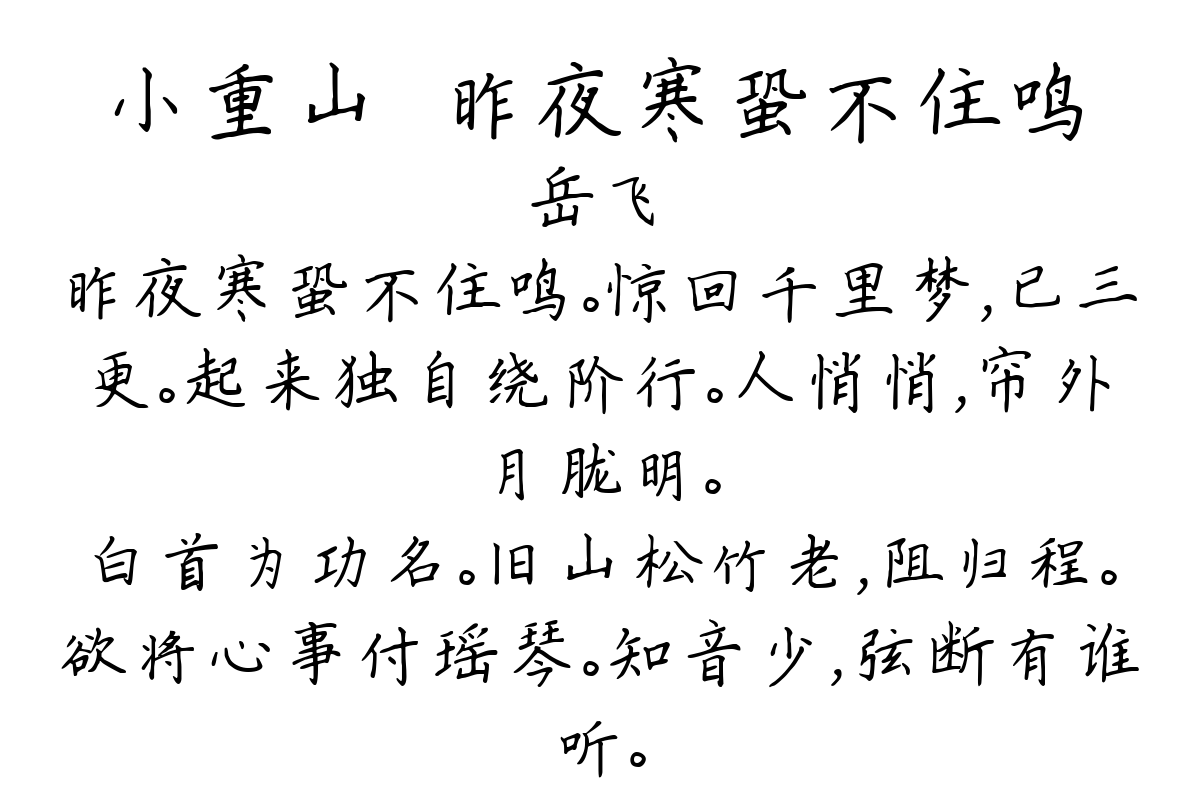 小重山 昨夜寒蛩不住鸣
岳飞
昨夜寒蛩不住鸣。惊回千里梦,已三
更。起来独自绕阶行。人悄悄,帘外
月胧明。
白首为功名。旧山松竹老,阻归程。
欲将心事付瑶琴。知音少,弦断有谁
听。